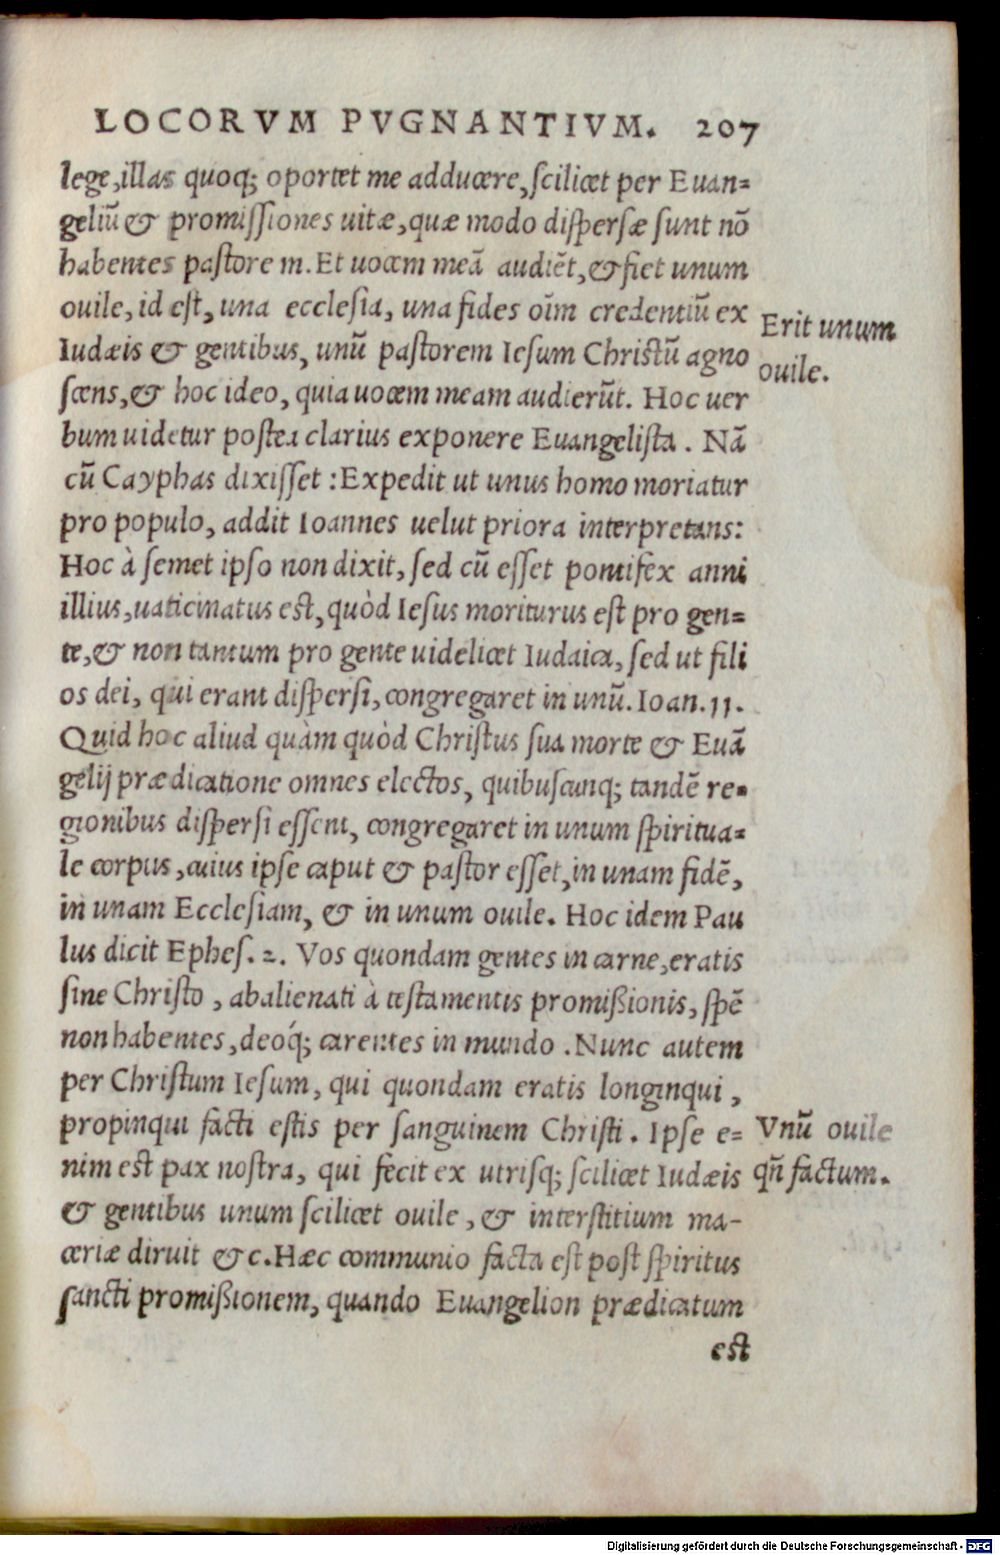 LOCORVM PVGNANTIVM. 207
lege, illas quoq; oportet me adducere, scilicet per Euan=
geliū & promissiones uitæ, quæ modo dispersæ sunt nō
habentes pastorem. Et uocem meā audiēt, & fiet unum
ouile, id est, una ecclesia, una fides oīm credentiū ex
Iudæis & gentibus, unū pastorem Iesum Christū agno
scens, & hoc ideo, quia uocem meam audierūt. Hoc uer
bum uidetur postea clarius exponere Euangelista. Nā
cū Cayphas dixisset: Expedit ut unus homo moriatur
pro populo, addit Ioannes uelut priora interpretans:
Hoc à semet ipso non dixit, sed cū esset pontifex anni
illius, uaticinatus est, quòd Iesus moriturus est pro gen=
te, & non tantum pro gente uidelicet Iudaica, sed ut fili
os dei, qui erant dispersi, congregaret in unū. Ioan. 11.
Quid hoc aliud quàm quòd Christus sua morte & Euā
gelij prædicatione omnes electos, quibuscunq; tandē re=
gionibus dispersi essent, congregaret in unum spiritua=
le corpus, cuius ipse caput & pastor esset, in unam fidē,
in unam Ecclesiam, & in unum ouile. Hoc idem Pau
lus dicit Ephes. 2. Vos quondam gentes in carne, eratis
sine Christo, abalienati à testamentis promißionis, spē
non habentes, deoq́; carentes in mundo. Nunc autem
per Christum Iesum, qui quondam eratis longinqui,
propinqui facti estis per sanguinem Christi. Ipse e=
nim est pax nostra, qui fecit ex utrisq; scilicet Iudæis
& gentibus unum scilicet ouile, & interstitium ma-
ceriæ diruit &c. Hæc communio facta est post spiritus
sancti promißionem, quando Euangelion prædicatum
est
Erit unum
ouile.
Vnū ouile
qñ factum.
Digitalisierung gefördert durch die Deutsche Forschungsgemeinschaft - DFG